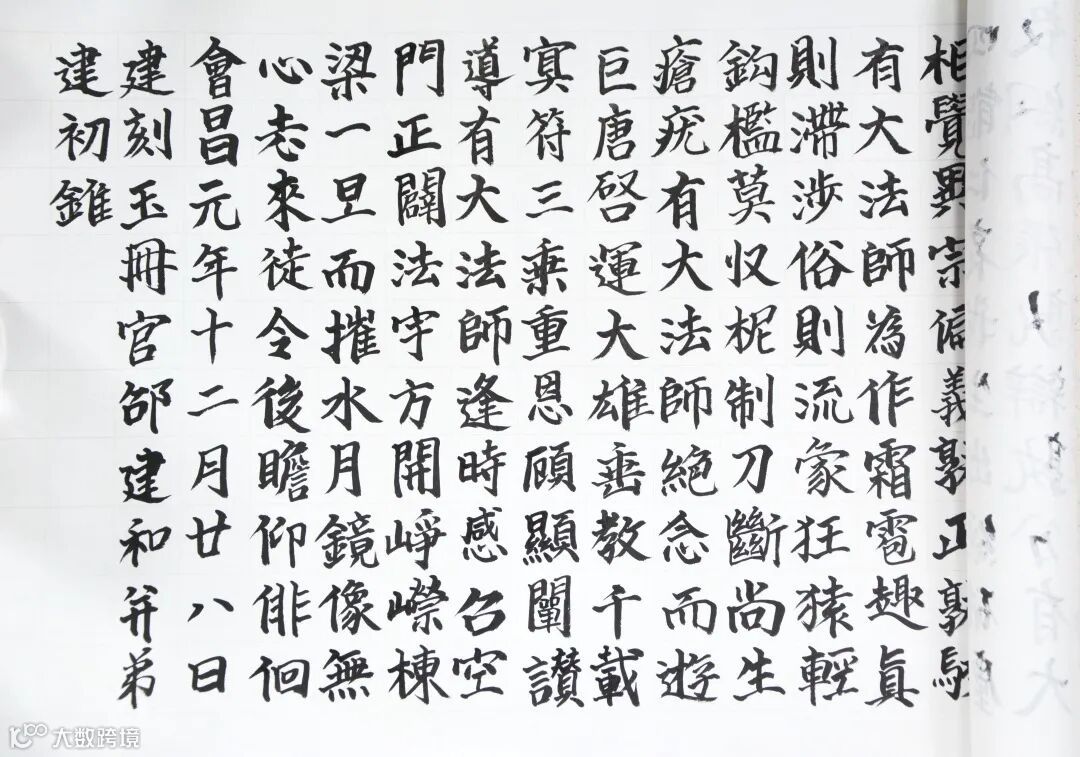 相覺異宗偏義孰正孰駮
有大法師為作霜雹趣真
則滯涉俗則流象狂猿輕
鈎檻莫収柅制刀斷尚生
瘡疣有大法師絕念而遊
巨唐啓運大雄垂教千載
寘符三乗重恩顧顯闡讃
導有大法師逢時感召空
門正闢法宇方開崢嶸棟
梁一旦而摧水月鏡像無
心志來徒令後瞻仰俳佪
會昌元年十二月廿八日
建刻玉冊官邵建和并弟
建初錐
大数跨境